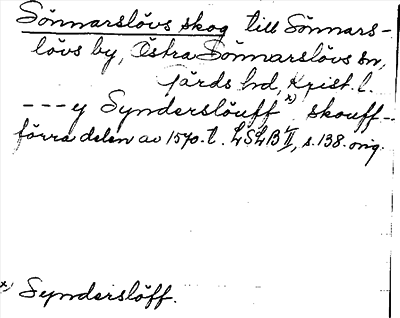 Sönnarslövs skog till Sönnars-
lövs by, Östra Sönnarslövs sn,
järds hd, Krist. l.
---y Synderslöuff x) skouff--
förra delen av 1570-t. LSLB II, s. 138. orig.
x) Synderslöff.